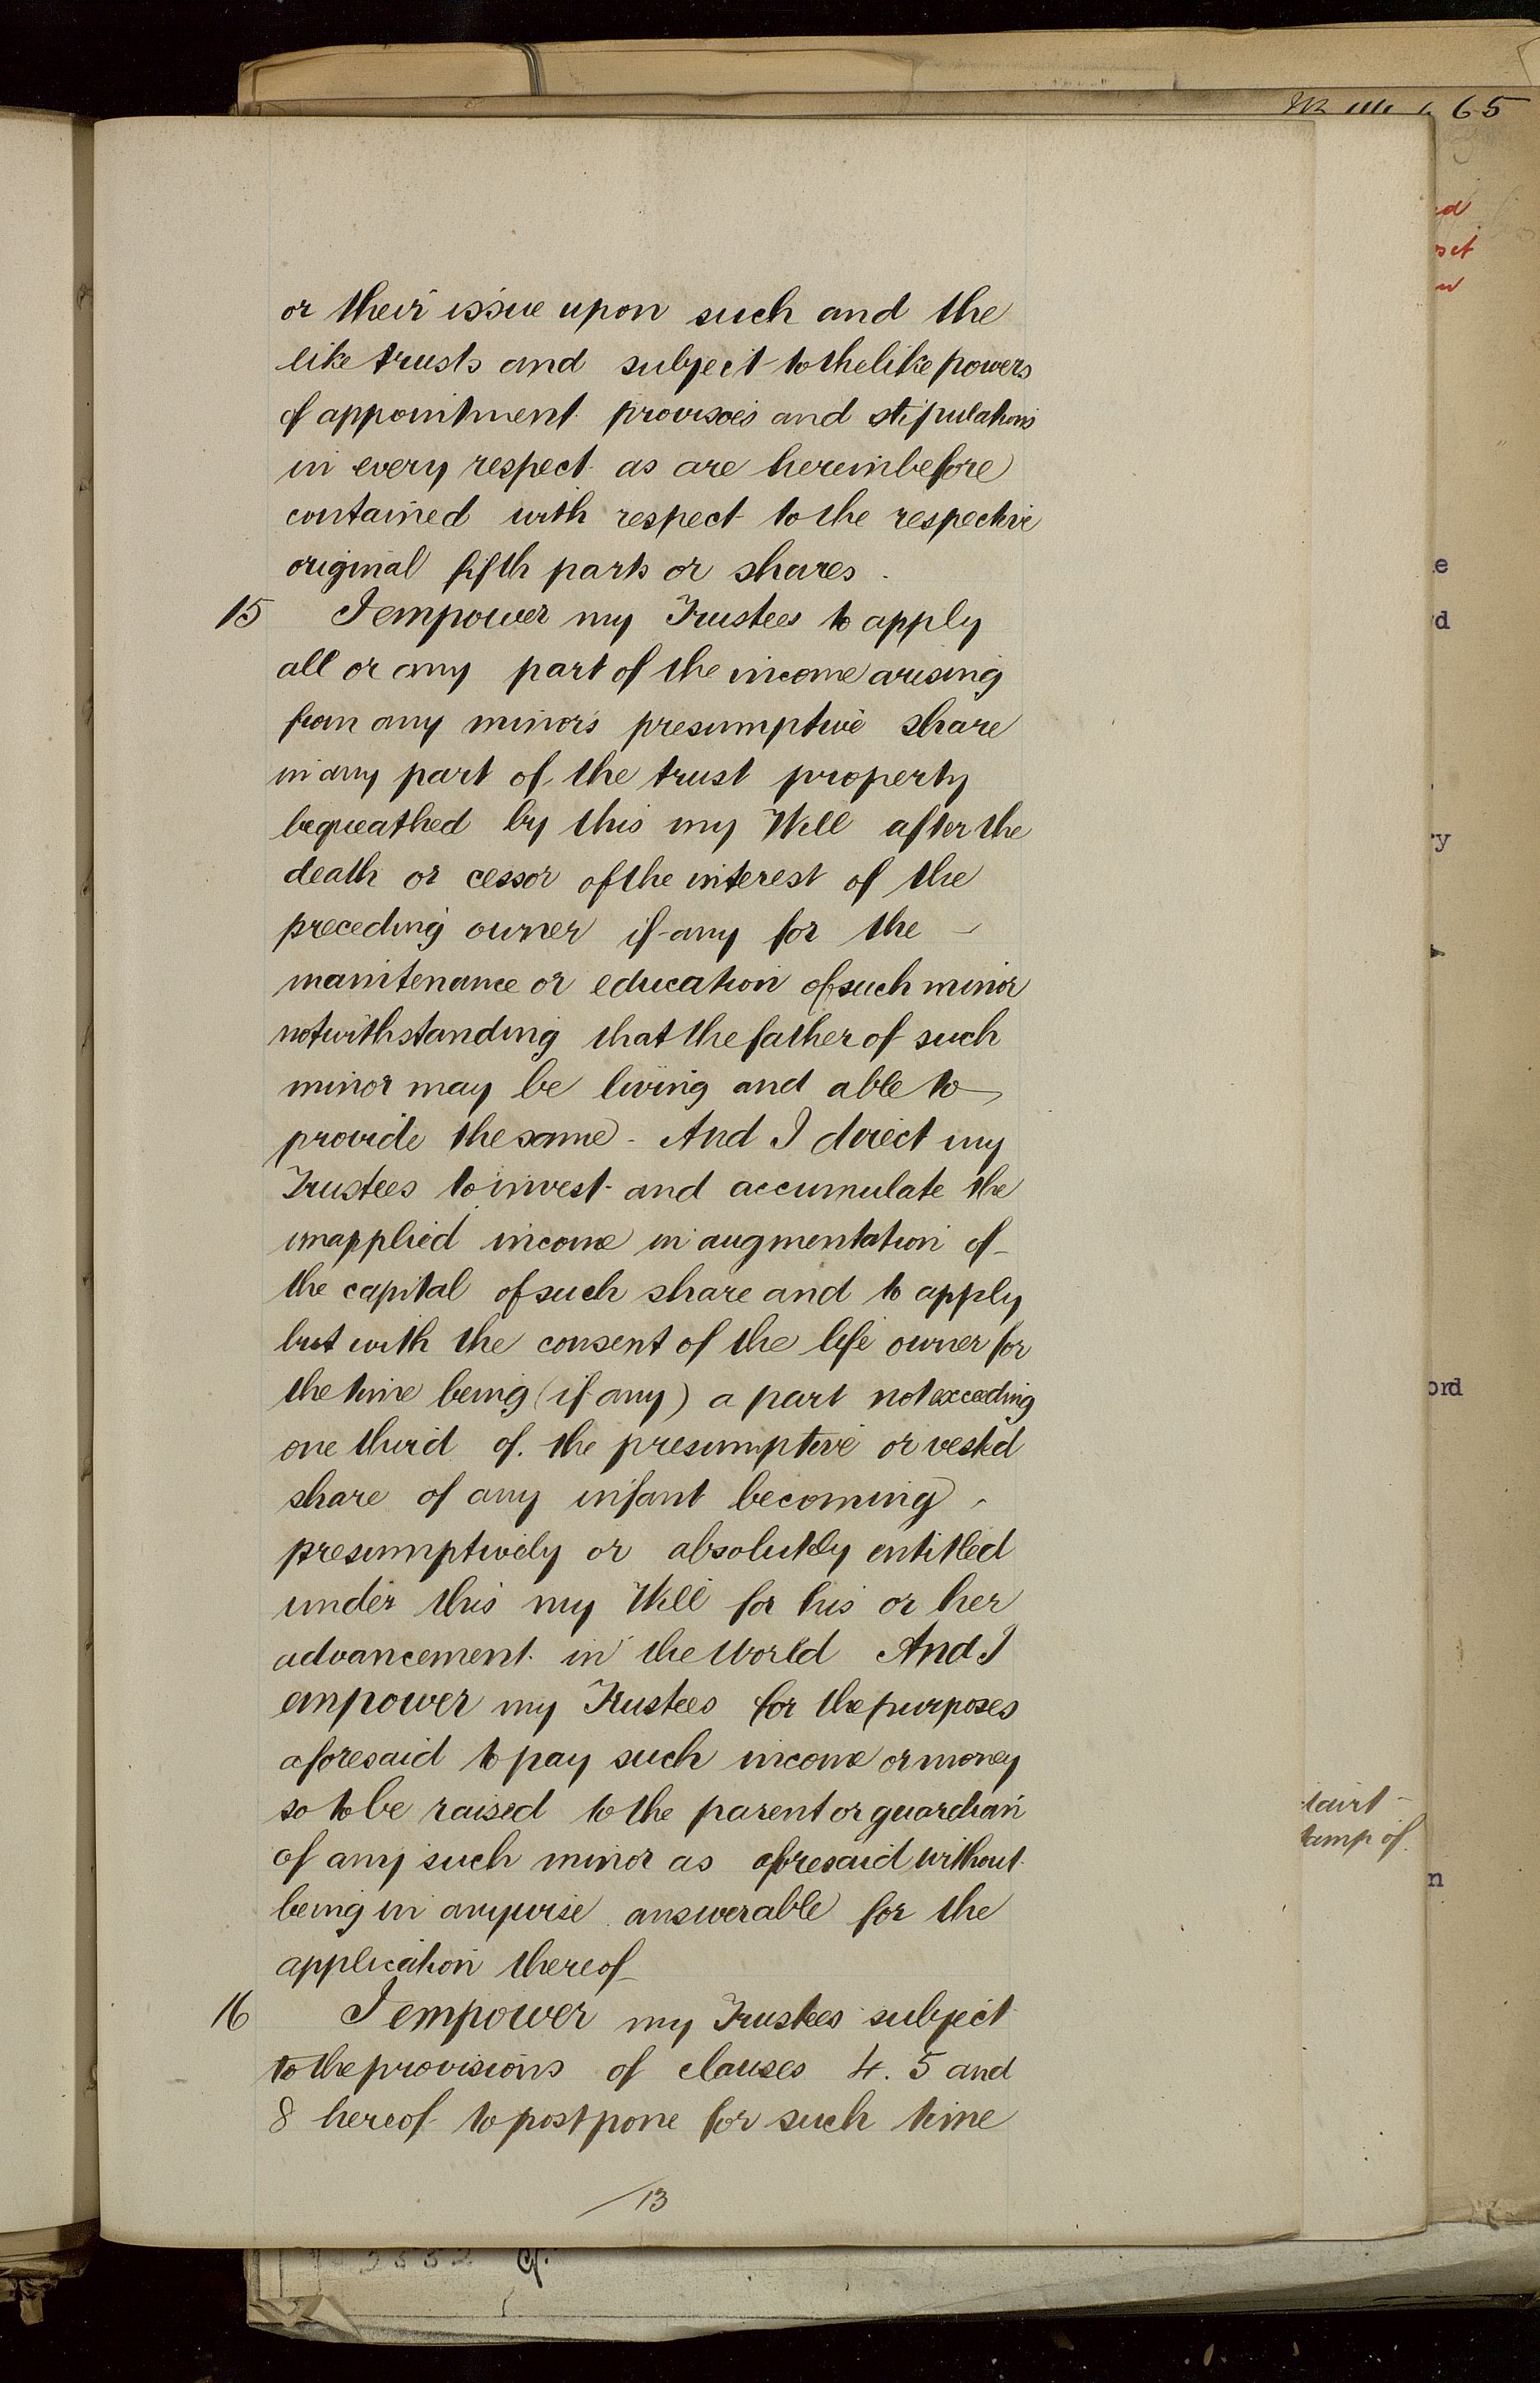 65
or their issue upon such and the
like trusts and subject to the like powers
of appointment provisoes and stipulations
in every respect as are hereinbefore
contained with respect to the respective
original fifth parts or shares.
15 I empower my Trustees to apply
all or any part of the income arising
from any minor's presumptive share
in any part of the trust property
bequeathed by this my Will after the
death or cessor of the interest of the
preceding owner if any for the -
maintenance or education of such minor
notwithstanding that the father of such
minor may be living and able to
provide the same - And I direct my
Trustees to invest and accumulate the
unapplied income in augmentation of
the capital of such share and to apply
but with the consent of the life owner for
the time being (if any) a part not exceeding
one third of the presumptive or vested
share of any infant becoming
presumptively or absolutely entitled
under this my Will for his or her
advancement in the World And I
empower my Trustees for the purposes
aforesaid to pay such income or money
so to be raised to the parent or guardian
of any such minor as aforesaid without
being in anywise answerable for the
application thereof
16 I empower my Trustees subject
to the provisions of clauses 4. 5 and
8 hereof to postpone for such time
13